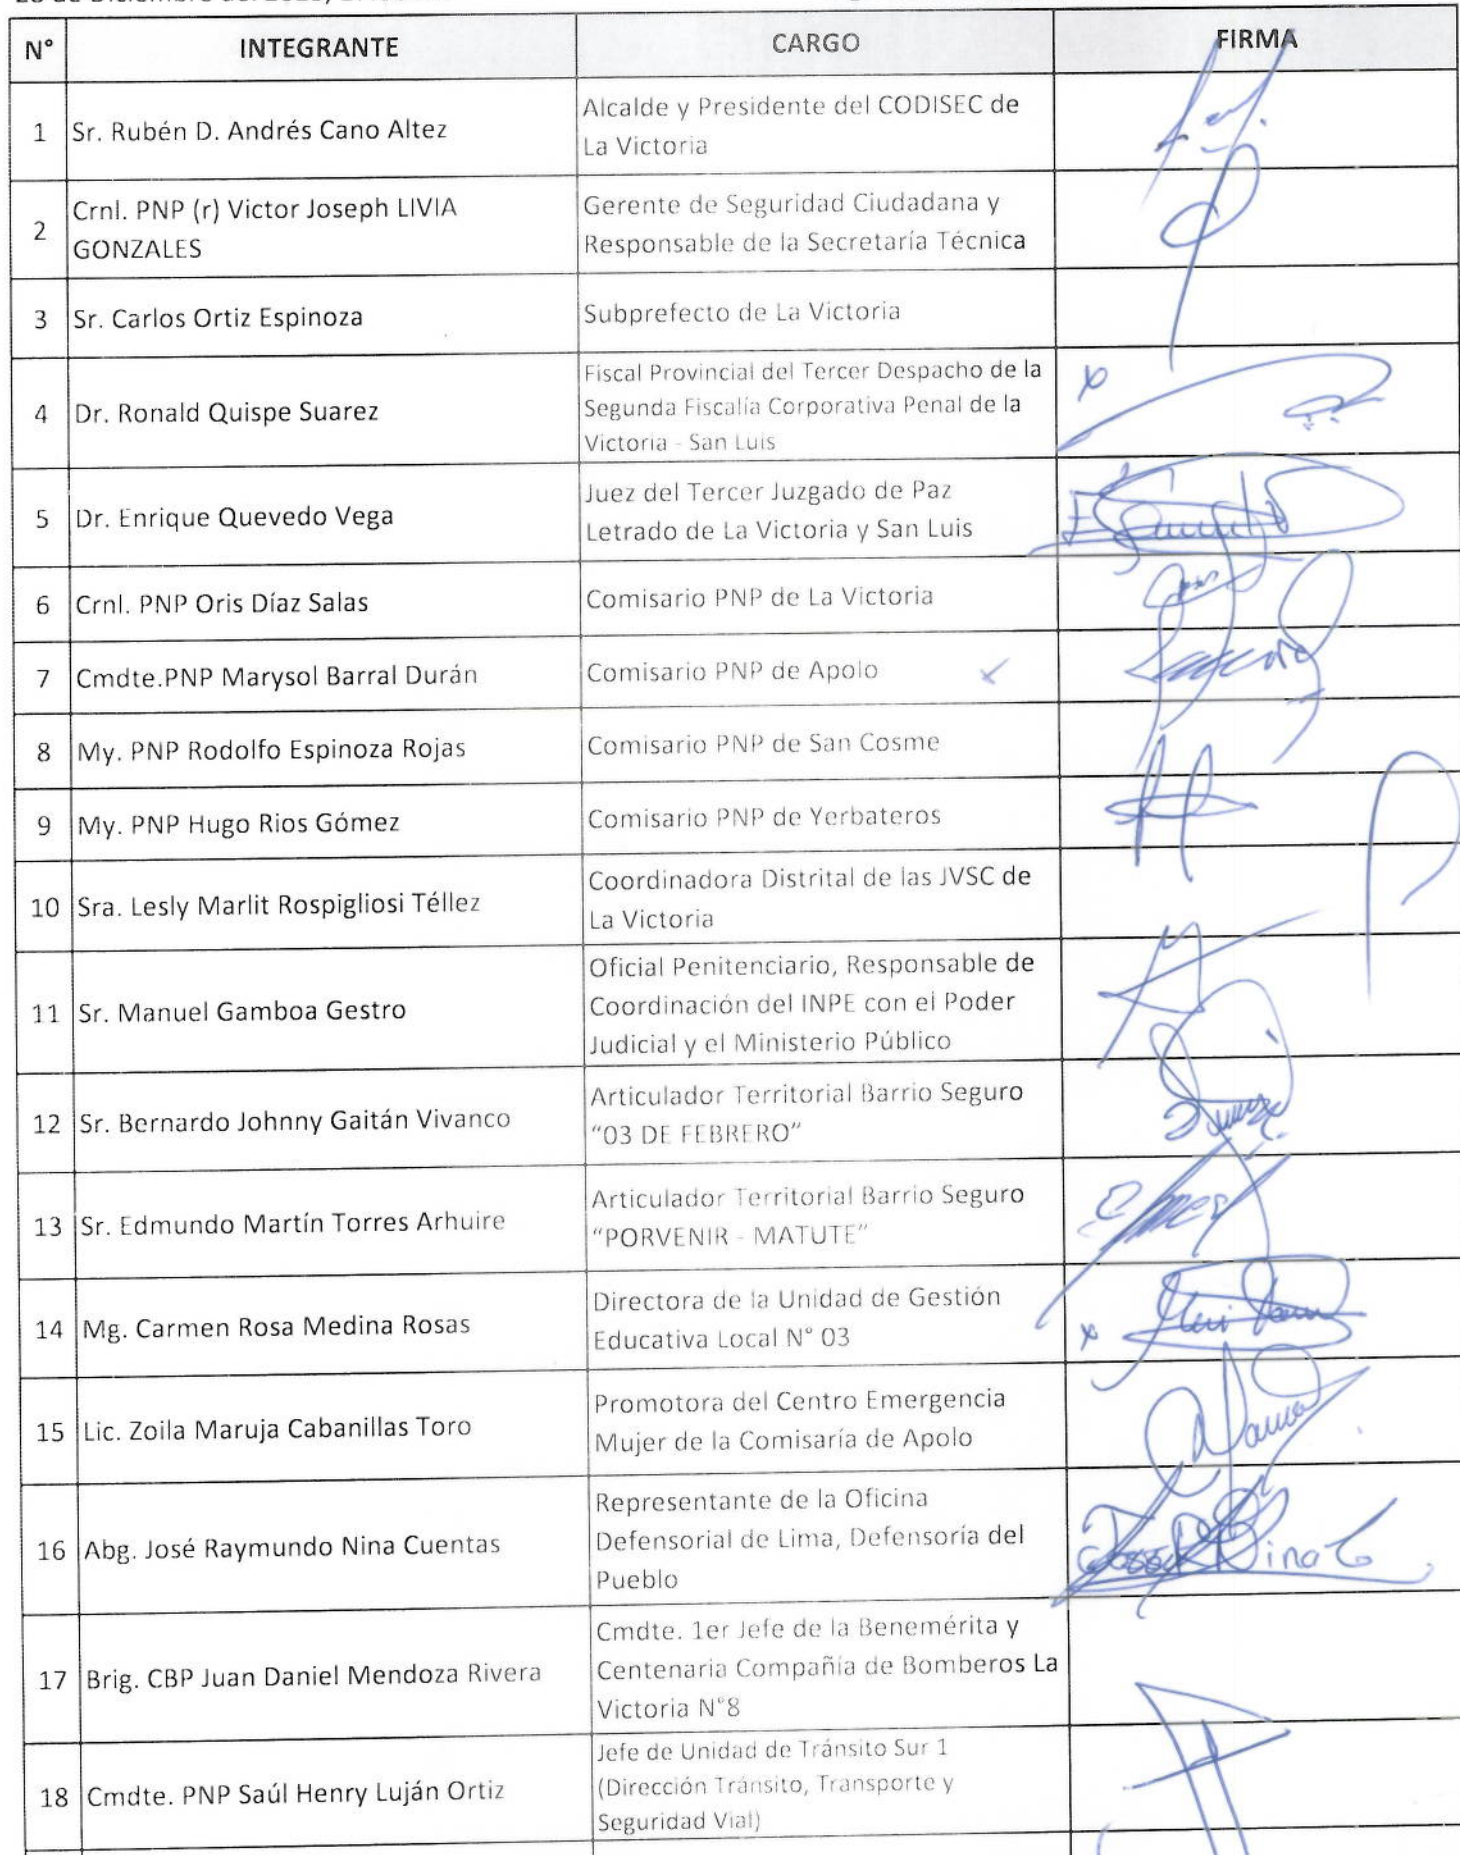 N° INTEGRANTE CARGO FIRMA
1 Sr. Rubén D. Andrés Cano Altez
Alcalde y Presidente del CODISEC de
La Victoria
2 Crnl. PNP (r) Victor Joseph LIVIA
GONZALES
Gerente de Seguridad Ciudadana y
Responsable de la Secretaría Técnica
3 Sr. Carlos Ortiz Espinoza
Subprefecto de La Victoria
4 Dr. Ronald Quispe Suarez
Fiscal Provincial del Tercer Despacho de la
Segunda Fiscalía Corporativa Penal de la
Victoria - San Luis
5 Dr. Enrique Quevedo Vega
Juez del Tercer Juzgado de Paz
Letrado de La Victoria y San Luis
6 Crnl. PNP Oris Díaz Salas
Comisario PNP de La Victoria
7 Cmdte.PNP Marysol Barral Durán
Comisario PNP de Apolo
8 My. PNP Rodolfo Espinoza Rojas
Comisario PNP de San Cosme
9 My. PNP Hugo Rios Gómez
Comisario PNP de Yerbateros
10 Sra. Lesly Marlit Rospigliosi Téllez
Coordinadora Distrital de las JVSC de
La Victoria
11 Sr. Manuel Gamboa Gestro
Oficial Penitenciario, Responsable de
Coordinación del INPE con el Poder
Judicial y el Ministerio Público
12 Sr. Bernardo Johnny Gaitán Vivanco
Articulador Territorial Barrio Seguro
“03 DE FEBRERO”
13 Sr. Edmundo Martín Torres Arhuire
Articulador Territorial Barrio Seguro
“PORVENIR - MATUTE”
14 Mg. Carmen Rosa Medina Rosas
Directora de la Unidad de Gestión
Educativa Local N° 03
15 Lic. Zoila Maruja Cabanillas Toro
Promotora del Centro Emergencia
Mujer de la Comisaría de Apolo
16 Abg. José Raymundo Nina Cuentas
Representante de la Oficina
Defensorial de Lima, Defensoría del
Pueblo
17 Brig. CBP Juan Daniel Mendoza Rivera
Cmdte. 1er Jefe de la Benemérita y
Centenaria Compañía de Bomberos La
Victoria N°8
18 Cmdte. PNP Saúl Henry Luján Ortiz
Jefe de Unidad de Tránsito Sur 1
(Dirección Tránsito, Transporte y
Seguridad Vial)